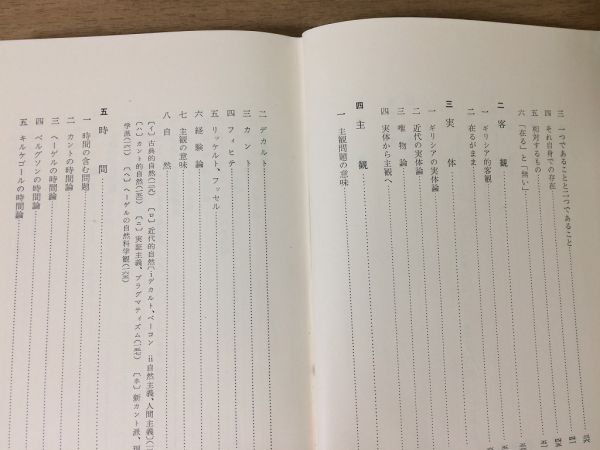 三 一つであることと二つであること
四 それ自身での存在
五 相対するもの
六 「在る」と「無い」
二 客観
一 ギリシア的客観
二 在るがまま
三 実体
一 ギリシアの実体論
二 近代の実体論
三 唯物論
四 実体から主観へ
四 主観
一 主観問題の意味
二 デカルト
三 カント
四 フィヒテ
五 リッケルト、フッセル
六 経験論
七 主観の意味
八 自然
〔イ〕古典的自然 〔ロ〕近代的自然(ⅰデカルト、ベーコン ⅱ自然主義、人間主義)
〔ハ〕カント的自然 〔ニ〕実証主義、プラグマティズム 〔ホ〕新カント派、現
学派 〔ヘ〕ヘーゲルの自然科学観
五 時間
一 時間の含む問題
二 カントの時間論
三 ヘーゲルの時間論
四 ベルグソンの時間論
五 キルケゴールの時間論